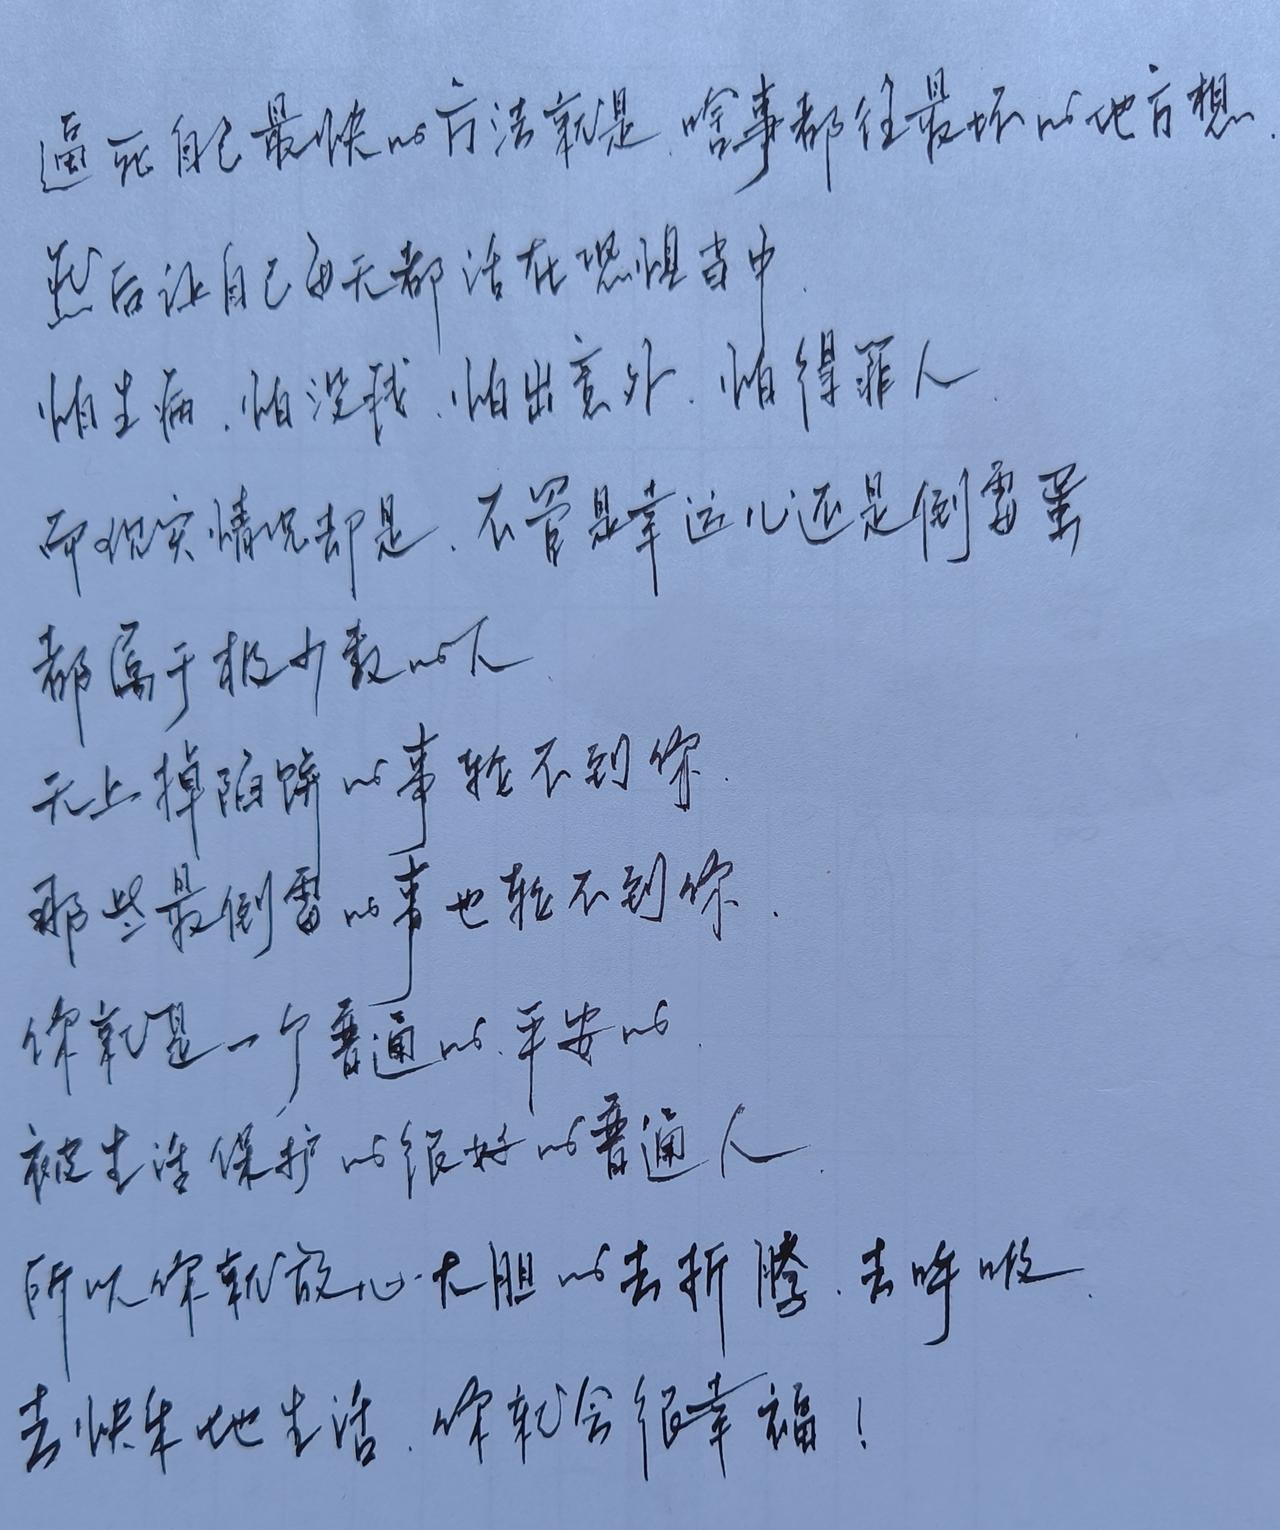 逼死自己最快的方法就是.啥事都往最坏的地方想.
然后让自己每天都活在恐惧当中.
怕生病.怕没钱.怕出意外.怕得罪人.
而现实情况却是.不管是幸运儿还是倒霉蛋
都属于极少数的人.
天上掉陷饼的事轮不到你.
那些最倒霉的事也轮不到你.
你就是一个普通的.平安的.
被生活保护的很好的普通人.
所以你就放心大胆的去折腾.去呼吸.
去快乐地生活.你就会很幸福!